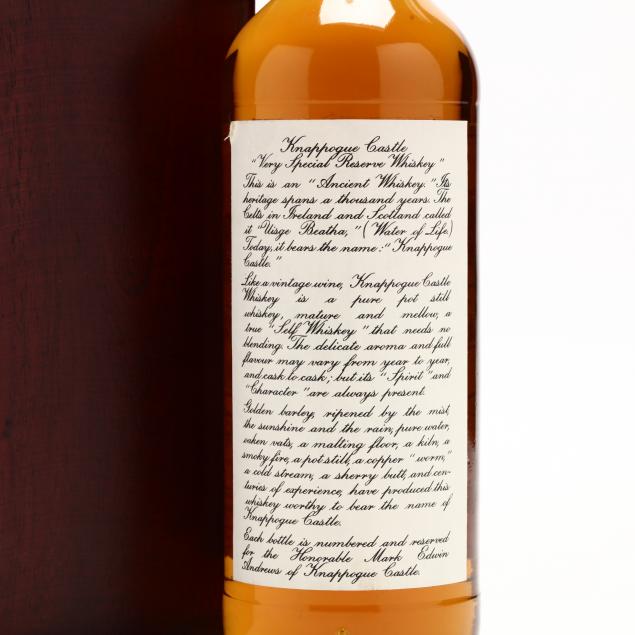 Knappogue Castle
"Very Special Reserve Whiskey"
This is an "Ancient Whiskey." Its
heritage spans a thousand years. The
Celts in Ireland and Scotland called
it "Uisge Beatha," (Water of Life.)
Today, it bears the name: "Knappogue
Castle."
Like a vintage wine, Knappogue Castle
Whiskey is a pure pot still
whiskey, mature and mellow, a
true "Self Whiskey" that needs no
blending. The delicate aroma and full
flavour may vary from year to year,
and cask to cask; but its "Spirit" and
"Character" are always present.
Golden barley, ripened by the mist,
the sunshine and the rain, pure water,
oaken vats, a malting floor, a kiln, a
smoky fire, a pot still, a copper "worm,"
a cold stream, a sherry butt, and cen-
turies of experience, have produced this
whiskey worthy to bear the name of
Knappogue Castle.
Each bottle is numbered and reserved
for the Honorable Mark Edwin
Andrews of Knappogue Castle.